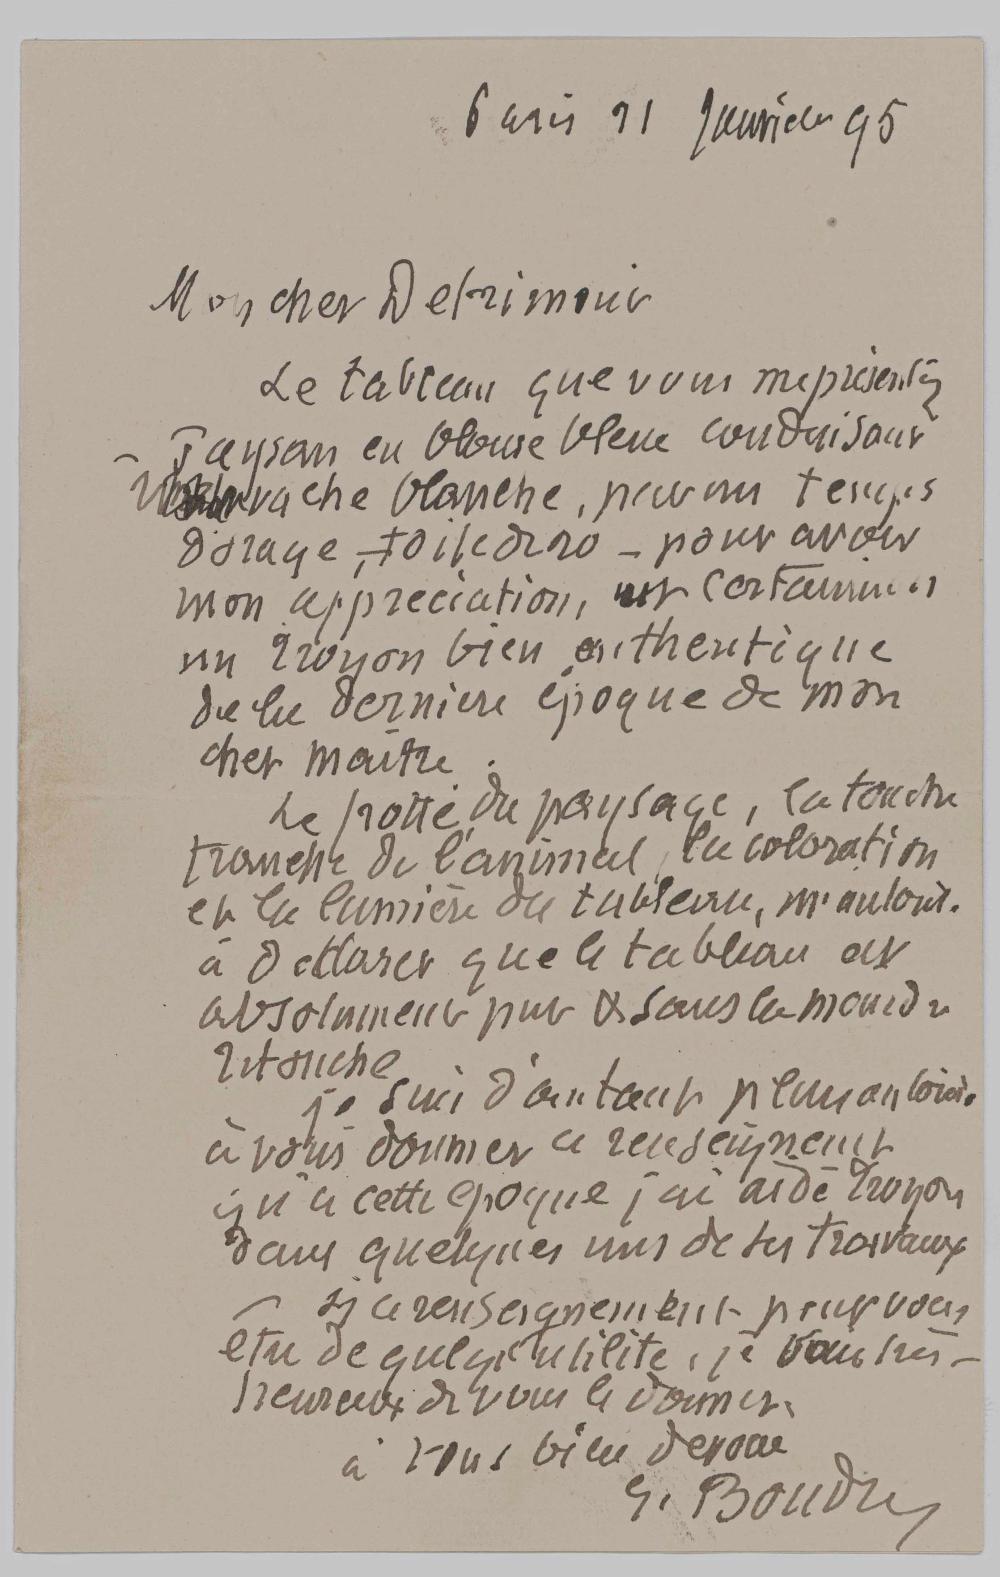 Paris 21 Janvier 95
Mon cher Detrimont
Le tableau que vous me présentez
paysan en blouse bleue conduisant
une vache blanche, par un temps
d'orage, toile de 20 - pour avoir
mon appréciation, est certainement
un Troyon bien authentique
de la dernière époque de mon
cher maître.
Le frotté du paysage, la touche
franche de l'animal, la coloration
et la lumière du tableau, m'autoris.
à déclarer que le tableau est
absolument pur & sans la moindre
retouche
je suis d'autant plus autoris.
à vous donner ce renseignement
qu'à cette époque j'ai aidé Troyon
dans quelques uns de ses travaux
Si ce renseignement peut vous
être de quelq' utilité, je suis très-
heureux de vous le donner.
à vous bien dévoué
E. Boudin